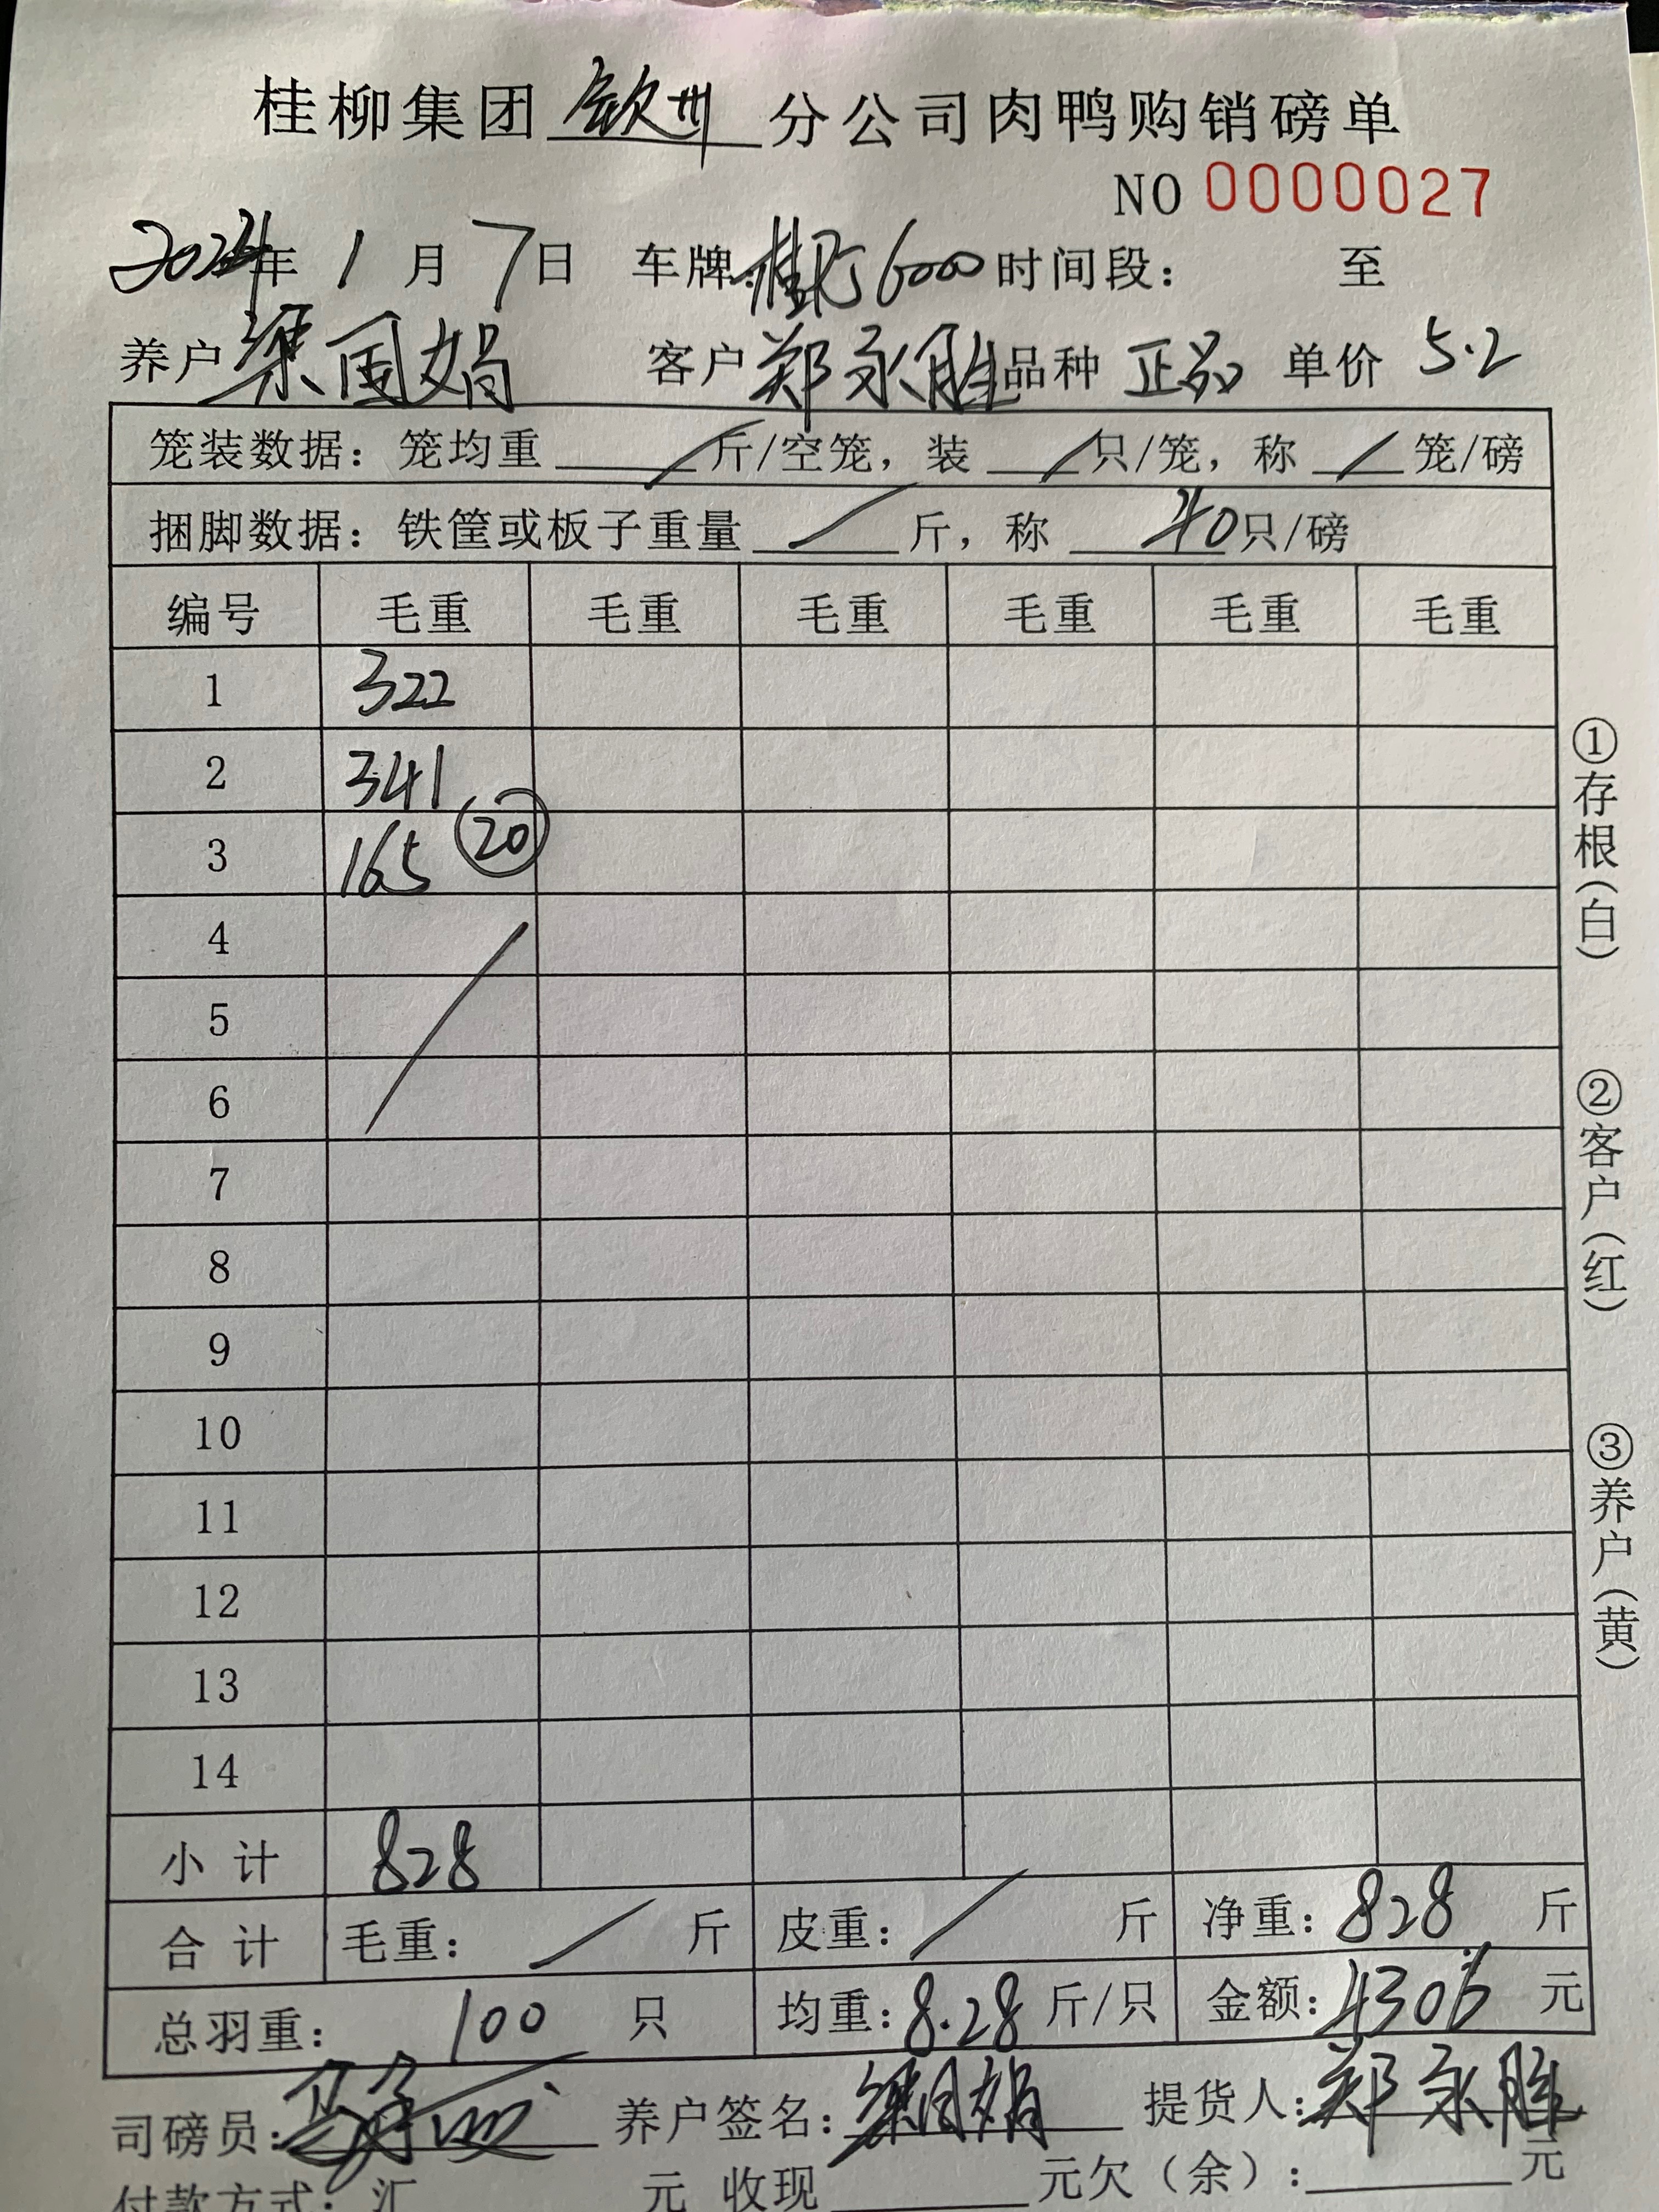 桂柳集团 钦州 分公司肉鸭购销磅单
NO 0000027
2024年 1 月 7日 车牌: 桂 6000 时间段: 至
养户 梁国娟 客户 郑永胜 品种 正品 单价 5.2
笼装数据: 笼均重 / 斤/空笼, 装 / 只/笼, 称 / 笼/磅
捆脚数据: 铁筐或板子重量 / 斤, 称 40 只/磅
编号 毛重 毛重 毛重 毛重 毛重 毛重
1 322
2 341
3 165 20
4
5
6
7
8
9
10
11
12
13
14
小计 828
合计 毛重: / 斤 皮重: / 斤 净重: 828 斤
总羽重: 100 只 均重: 8.28 斤/只 金额: 4306 元
司磅员: 养户签名: 梁国娟 提货人: 郑永胜
付款方式: 汇 元 收现 元欠(余): 元
①存根(白)
②客户(红)
③养户(黄)